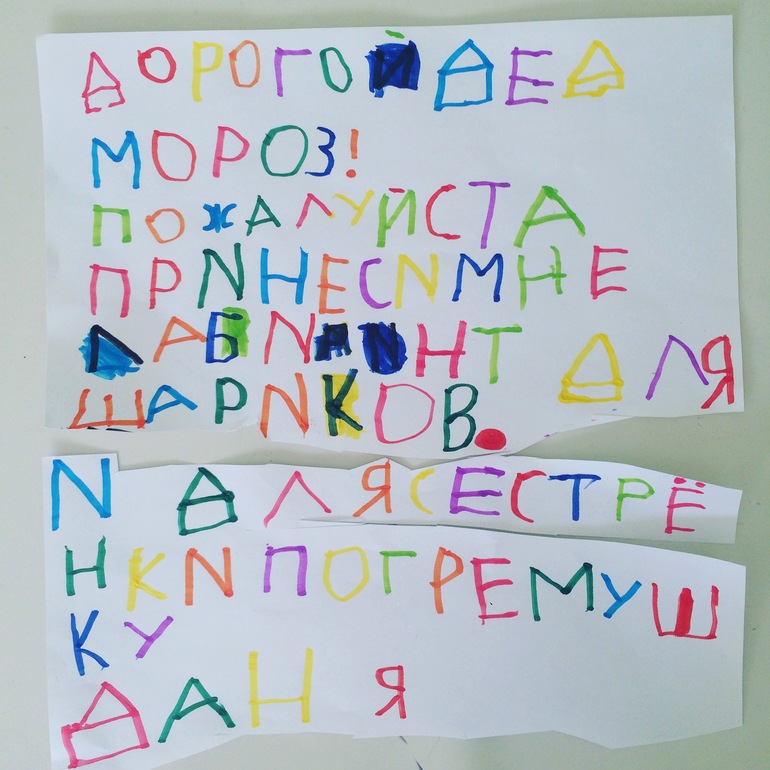 ДОРОГОЙ ДЕД
МОРОЗ!
ПОЖАЛУЙСТА
ПРИНЕСИ МНЕ
ЛАБИРИНТ ДЛЯ
ШАРИКОВ.
И ДЛЯ СЕСТРЁ
НКИ ПОГРЕМУШ
КУ
ДАНЯ